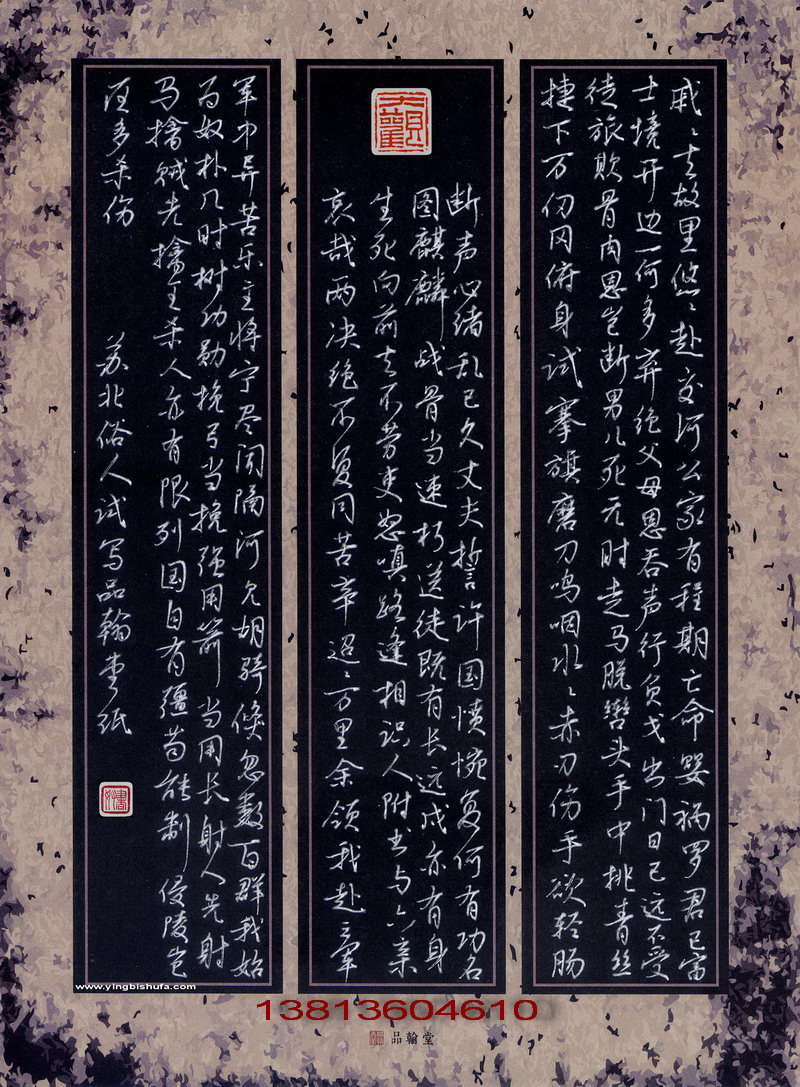 戚々去故里悠々赴交河公家有程期亡命婴祸罗君已富
土境开边一何多弃绝父母恩吞声行负戈出门日已远不受
徒旅欺骨肉恩岂断男儿死无时走马脱辔头手中挑青丝
捷下万仞冈俯身试搴旗磨刀鸣咽水々赤刃伤手欲轻肠
断声心绪乱已久丈夫誓许国愤惋复何有功名
图麒麟战骨当速朽送徒既有长远戍亦有身
生死向前去不劳吏怒嗔路逢相识人附书与六亲
哀哉两决绝不复同苦辛迢々万里余领我赴三军
军中异苦乐主将宁尽闻隔河见胡骑倏忽数百群我始
为奴朴几时树功勋挽弓当挽强用箭当用长射人先射
马擒贼先擒王杀人亦有限列国自有疆苟能制侵陵岂
在多杀伤 苏北俗人试写品翰堂纸
www.yingbishufa.com
13813604610
品翰堂